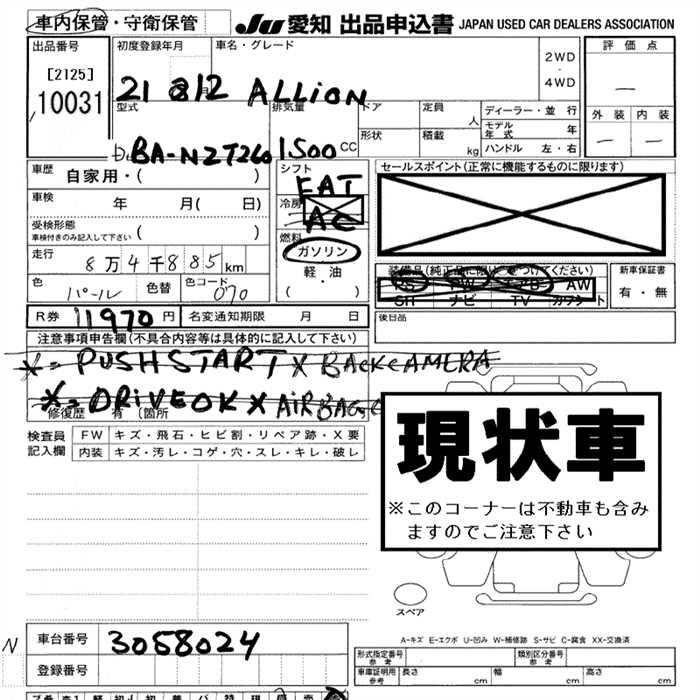 車内保管・守衛保管 JU 愛知 出品申込書 JAPAN USED CAR DEALERS ASSOCIATION
出品番号 初度登録年月 車名・グレード 2WD・4WD 評価点
[2125]
10031
21 年 12 月 ALLION
外装 内装
型式 排気量 ドア 定員 人 ディーラー・並行
モデル年式 年
BA-NZT260 1500 CC 形状 積載 kg ハンドル 左・右
車歴 自家用・( ) シフト FAT セールスポイント(正常に機能するものに限ります)
車検 年 月( 日) 冷房 AC
受検形態 ( )
車検付きのみ記入して下さい
燃料 ガソリン
軽・油
( ・ )
走行 8万4千885km
装備品(純正品に限り○をつけてください) 新車保証書
色 パール 色替 色コード 070
PS PW エアB AW
SH ナビ TV カワシート
有・無
R券 11970 円 名変通知期限 月 日 後日品
注意事項申告欄(不具合内容等は具体的に記入して下さい)
※=PUSHSTART X BACKCAMERA
※=DRIVEOK X AIRBAG
修復歴 有 (箇所
現状車
※このコーナーは不動車も含み
ますのでご注意下さい
検査員記入欄 FW キズ・飛石・ヒビ割・リペア跡・X要
内装 キズ・汚レ・コゲ・穴・スレ・キレ・破レ
スペア
A-キズ E-エクボ U-凹み W-補修跡 S-サビ C-腐食 XX-交換済
N 車台番号 3058024
登録番号
形式指定番号 参考 類別区分番号 参考
車庫証明用 参考 長さ cm 幅 cm 高さ cm